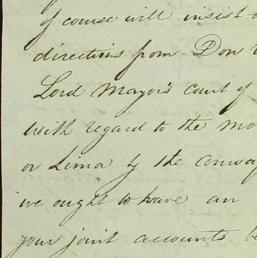 of course will insist o
directions from Don
Lord Mayor's Court of
With regard to the mo
or Lima by the Conway
we ought to have an
your joint accounts be